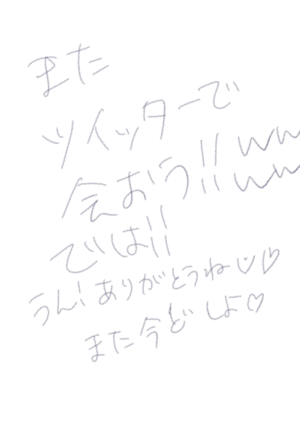 また
ツイッターで
会おう!!www
では!!
うん!ありがとうね♡♡
また今どしよ♡